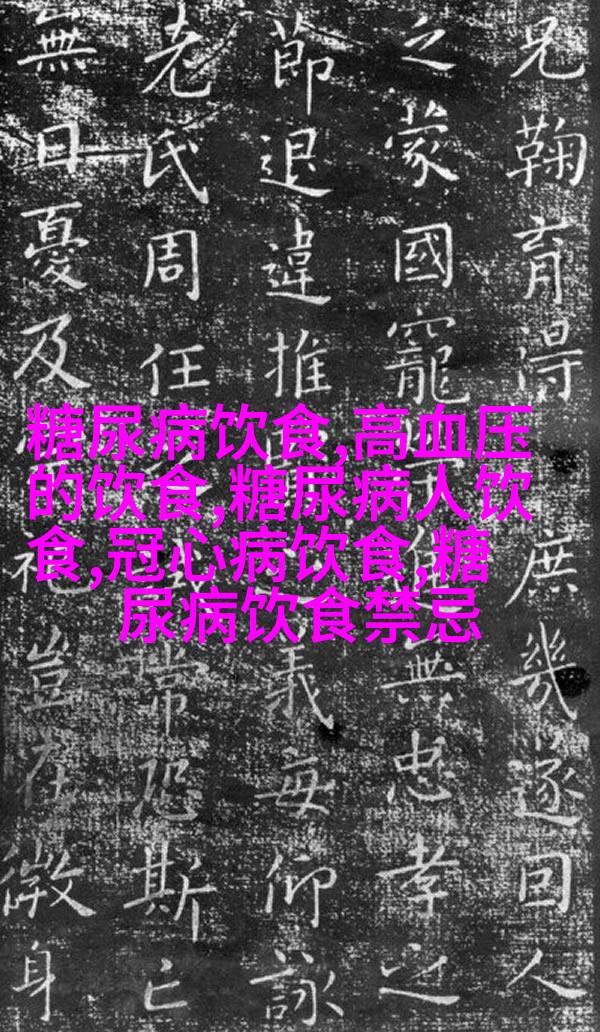 兄鞠育得庶幾遂回人
之蒙國寵進無忠孝之
節退違推義每仰詠
老氏周任常恐斯亡
無日憂及祀豈在微身
糖尿病饮食,高血压
的饮食,糖尿病人饮
食,冠心病饮食,糖
尿病饮食禁忌